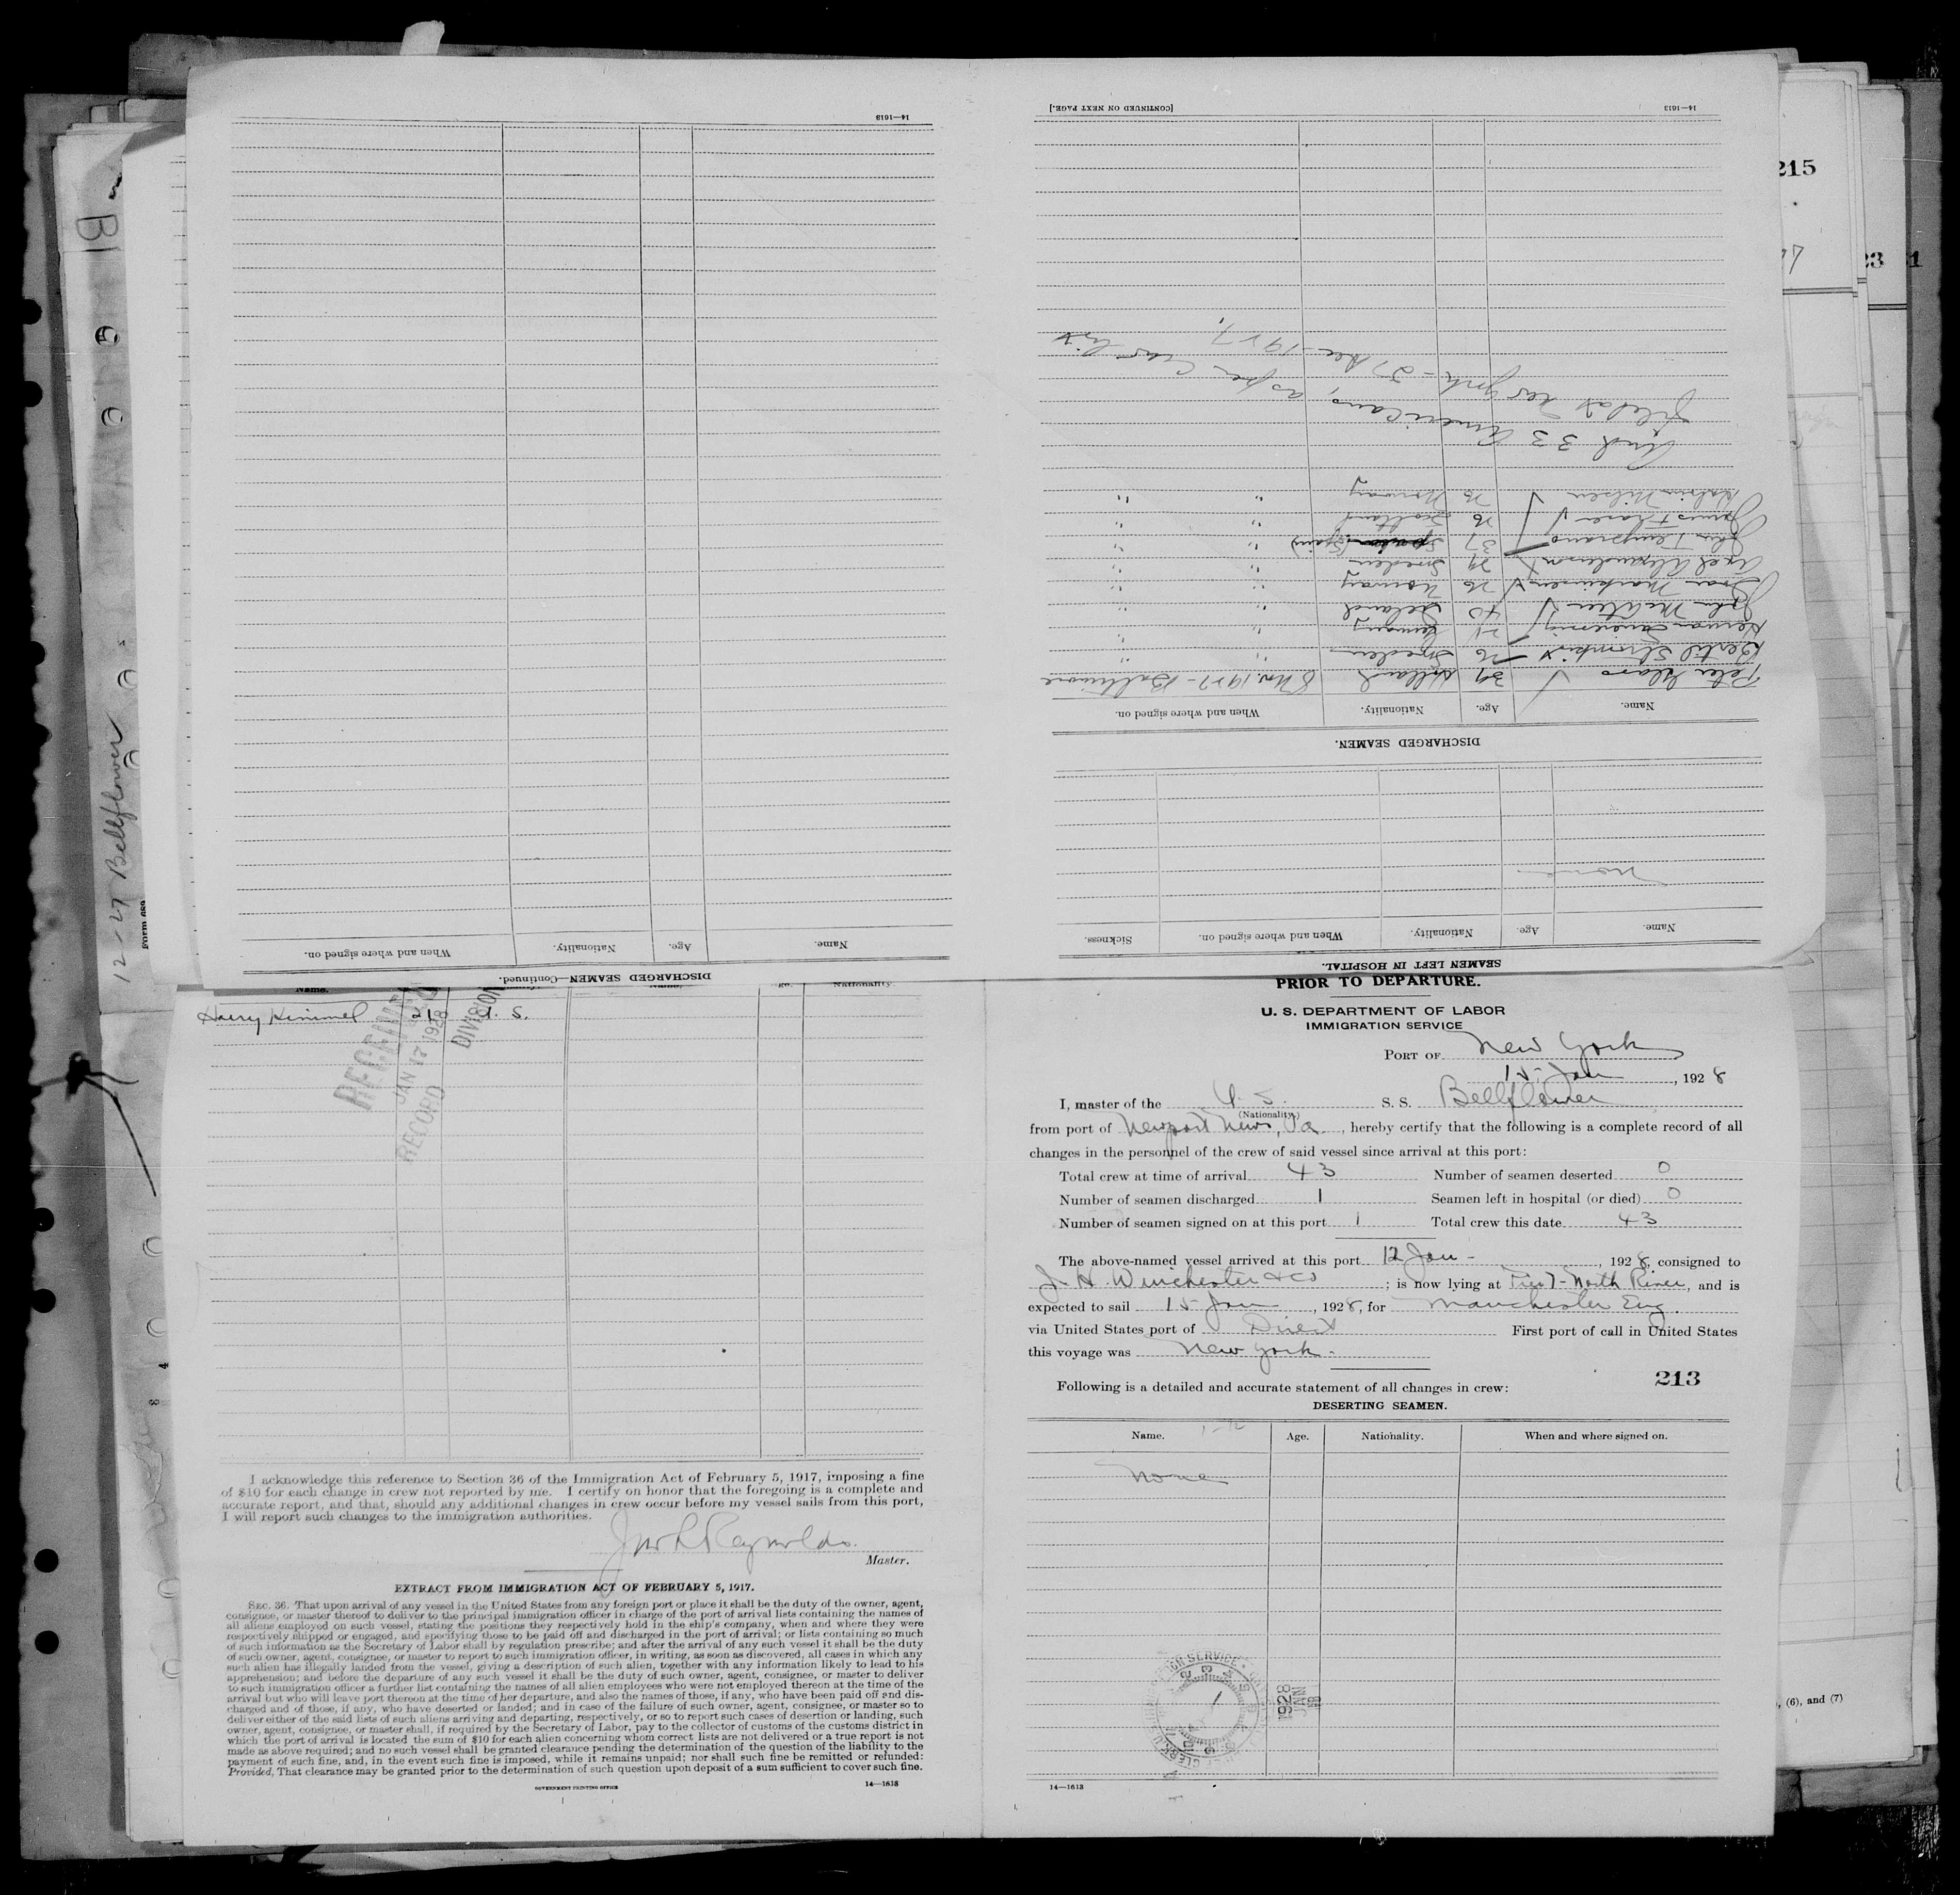 14—1613
[CONTINUED ON NEXT PAGE.]
14—1613
215
23
1
SEAMEN LEFT IN HOSPITAL.
Name. Age. Nationality. When and where signed on. Sickness.
None
DISCHARGED SEAMEN.
Name. Age. Nationality. When and where signed on.
Peter Klaso 39 Holland 8 Nov. 1927 - Baltimore
Bertil 26 Sweden " "
Herman 21 Germany " "
John McAteer 40 Ireland " "
Ivar Markussen 26 Norway " "
Axel Alexanderson 29 Sweden " "
John Temprano 37 (Spain) " "
James Fraser 26 Scotland " "
Nilsen 26 Norway " "
And 33 Americans, as per Crew list
filed at New York - 27 Dec - 1927.
DISCHARGED SEAMEN—Continued.
Name. Age. Nationality. When and where signed on.
12-27 Bellflower
Form 689
Name. Nationality
Harry Kimmel 21 U. S.
RECEIVED
JAN 17 1928
RECORD DIVISION
I acknowledge this reference to Section 36 of the Immigration Act of February 5, 1917, imposing a fine
of $10 for each change in crew not reported by me. I certify on honor that the foregoing is a complete and
accurate report, and that, should any additional changes in crew occur before my vessel sails from this port,
I will report such changes to the immigration authorities.
Jno L Reynolds
Master.
EXTRACT FROM IMMIGRATION ACT OF FEBRUARY 5, 1917.
SEC. 36. That upon arrival of any vessel in the United States from any foreign port or place it shall be the duty of the owner, agent,
consignee, or master thereof to deliver to the principal immigration officer in charge of the port of arrival lists containing the names of
all aliens employed on such vessel, stating the positions they respectively hold in the ship's company, when and where they were
respectively shipped or engaged, and specifying those to be paid off and discharged in the port of arrival; or lists containing so much
of such information as the Secretary of Labor shall by regulation prescribe; and after the arrival of any such vessel it shall be the duty
of such owner, agent, consignee, or master to report to such immigration officer, in writing, as soon as discovered, all cases in which any
such alien has illegally landed from the vessel, giving a description of such alien, together with any information likely to lead to his
apprehension; and before the departure of any such vessel it shall be the duty of such owner, agent, consignee, or master to deliver
to such immigration officer a further list containing the names of all alien employees who were not employed thereon at the time of the
arrival but who will leave port thereon at the time of her departure, and also the names of those, if any, who have been paid off and dis-
charged and of those, if any, who have deserted or landed; and in case of the failure of such owner, agent, consignee, or master so to
deliver either of the said lists of such aliens arriving and departing, respectively, or so to report such cases of desertion or landing, such
owner, agent, consignee, or master shall, if required by the Secretary of Labor, pay to the collector of customs of the customs district in
which the port of arrival is located the sum of $10 for each alien concerning whom correct lists are not delivered or a true report is not
made as above required; and no such vessel shall be granted clearance pending the determination of the question of the liability to the
payment of such fine, and, in the event such fine is imposed, while it remains unpaid; nor shall such fine be remitted or refunded:
Provided, That clearance may be granted prior to the determination of such question upon deposit of a sum sufficient to cover such fine.
GOVERNMENT PRINTING OFFICE
14—1613
PRIOR TO DEPARTURE.
U. S. DEPARTMENT OF LABOR
IMMIGRATION SERVICE
PORT OF New York
15 Jan, 1928
I, master of the U. S. S. S. Bellflower
(Nationality.)
from port of Newport News, Va, hereby certify that the following is a complete record of all
changes in the personnel of the crew of said vessel since arrival at this port:
Total crew at time of arrival 43 Number of seamen deserted 0
Number of seamen discharged 1 Seamen left in hospital (or died) 0
Number of seamen signed on at this port 1 Total crew this date 43
The above-named vessel arrived at this port 12 Jan -, 1928, consigned to
J. H. Winchester & Co; is now lying at Pier 7 - North River, and is
expected to sail 15 Jan, 1928, for Manchester Eng.
via United States port of Direct First port of call in United States
this voyage was New York.
213
Following is a detailed and accurate statement of all changes in crew:
DESERTING SEAMEN.
Name. Age. Nationality. When and where signed on.
None
1928
JAN
14—1613
, (6), and (7)